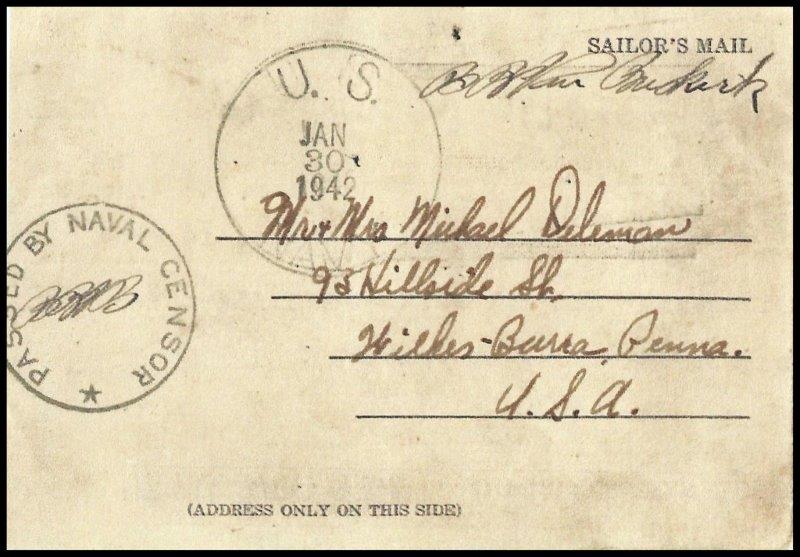 SAILOR'S MAIL
U. S.
JAN
30
1942
NAVY
PASSED BY NAVAL CENSOR
Mr + Mrs Michael Deleman
93 Hillside St.
Wilkes-Barra, Penna.
U. S. A.
(ADDRESS ONLY ON THIS SIDE)